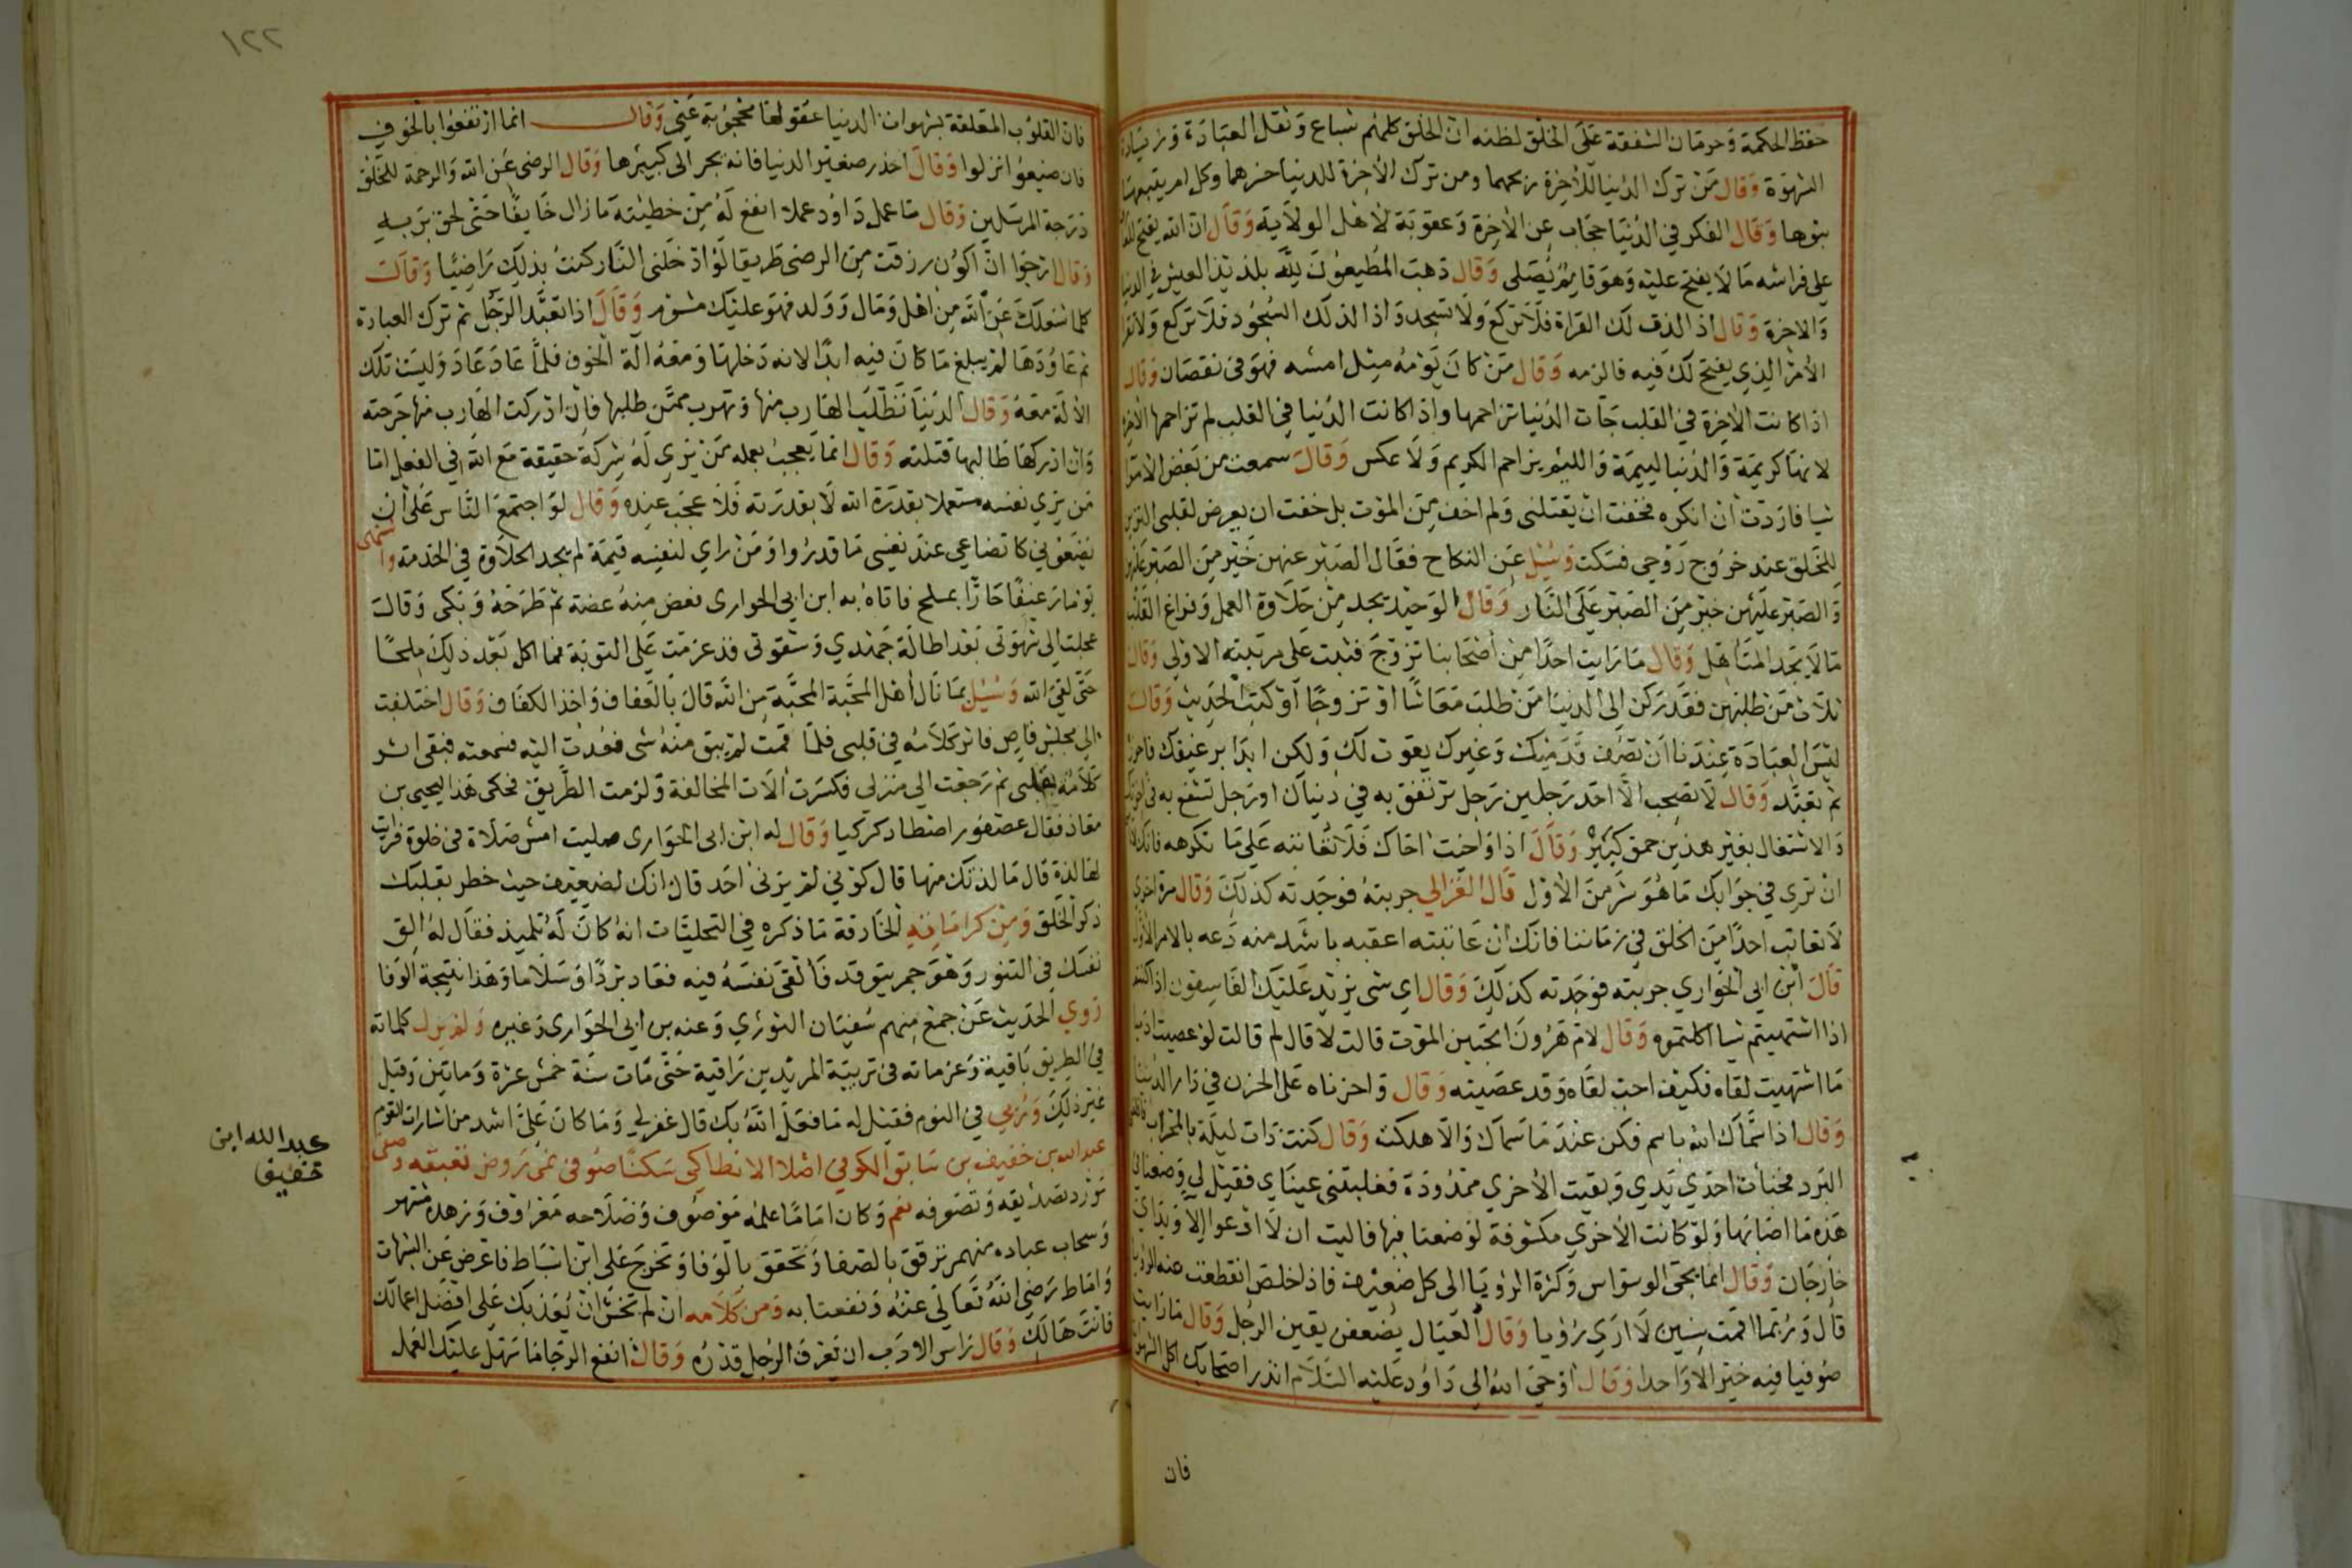 حفظ الحكمة وحرمان الشفقة على الخلق لظنه ان الخلق كلهم شباع وثقل العبادة وزيادة
الشهوة وقال من ترك الدنيا للآخرة ربحهما ومن ترك الآخرة للدنيا خسرهما وكل ام يتبعها
بنوها وقال الفكر في الدنيا حجاب عن الآخرة وعقوبة لأهل الولاية وقال ان الله يفتح
على فراشه ما لا يفتح عليه وهو قايم يصلى وقال ذهب المطيعون لله بلذيذ العيش في الدنيا
والاخرة وقال اذا لذت لك القراة فلا تركع ولا تسجد واذا لذ لك السجود فلا تركع ولا تقرا
الأمر الذي يفتح لك فيه فالزمه وقال من كان يومه مثل امسه فهو فى نقصان وقال
اذا كانت الآخرة في القلب جات الدنيا تزاحمها واذا كانت الدنيا في القلب لم تزاحمها الآخرة
لانها كريمة والدنيا لييمة واللييم يزاحم الكريم ولا عكس وقال سمعت من بعض الامرا
شيا فاردت ان انكره فخفت ان يقتلنى ولم اخف من الموت بل خفت ان يعرض لقلبى التزين
للخلق عند خروج روحي فسكت وسئل عن النكاح فقال الصبر عنهن خير من الصبر عليهن
والصبر عليهن خير من الصبر على النار وقال الوحيد يجد من حلاوة العمل وفراغ القلب
ما لا يجد المتأهل وقال ما رايت احدا من أصحابنا تزوج فثبت على مرتبته الاولى وقال
ثلاث من طلبهن فقد ركن إلى الدنيا من طلب معاشا او تزوج او كتب الحديث وقال
ليس العبادة عندنا ان تصف قدميك وغيرك يقوت لك ولكن ابدا برغيفك فاحرز
ثم تعبد وقال لا تصحب الا احد رجلين رجل ترتفق به في دنياك او رجل تنتفع به في اخرتك
والاشتغال بغير هذين حمق كبير وقال اذا واخيت اخاك فلا تعاتبه على ما تكرهه فانك لا
ان ترى في جوابك ما هو شر من الأول قال الغزالي جربته فوجدته كذلك وقال مرة اخرى
لا تعاتب احدا من الخلق في زماننا فانك ان عاتبته اعقبه باشد منه دعه بالامر الأول
قال ابن ابي الحواري جربته فوجدته كذلك وقال اي شى يزيد عليك الفاسقون اذا كنتم
اذا اشتهيتم شيا اكلتموه وقال لام هرون اتحبين الموت قالت لا قال لم قالت لو عصيت ادميا
ما اشتهيت لقاه فكيف احب لقاه وقد عصيته وقال واحزناه على الحزن في دار الدنيا
وقال اذا سماك الله باسم فكن عند ما سماك والا هلكت وقال كنت ذات ليلة بالمحراب
البرد فخبأت احدى يدي وبقيت الأخري ممدودة فغلبتنى عيناي فقيل لي وضعنا في
هذه ما اصابها ولو كانت الأخري مكشوفة لوضعنا فيها فاليت ان لا ادعو الا ويداي
خارجان وقال انما يجى الوسواس وكثرة الرؤيا الى كل ضعيف فاذا خلص انقطعت عنه الرؤيا
قال وربما اقمت سنين لا ارى رؤيا وقال العيال يضعفن يقين الرجل وقال ما رايت
صوفيا فيه خير الا واحدا وقال أوحى الله الى داود عليه السلام انذر اصحابك اكل الشهوات
فان
١٢٢
فان القلوب المتعلقة بشهوات الدنيا عقولها محجوبة عني وقال انما ارتفعوا بالخوف
فان ضيعوا نزلوا وقال احذر صغير الدنيا فانه يجر الى كبيرها وقال الرضى عن الله والرحمة للخلق
درجة المرسلين وقال ما عمل داود عملا انفع له من خطيئة ما زال خايفا حتى لحق بربه
وقال ارجوا ان اكون رزقت من الرضى طريقا لو ادخلنى النار كنت بذلك راضيا وقال
كلما شغلك عن الله من اهل ومال وولد فهو عليك مشوم وقال اذا تعبد الرجل ثم ترك العبادة
ثم عاودها لم يبلغ ما كان فيه ابدا لانه دخلها ومعه آلة الخوف فلما عاد عاد وليست تلك
الآلة معه وقال الدنيا تطلب الهارب منها وتهرب ممن طلبها فان ادركت الهارب منها جرحته
وان ادركها طالبها قتلته وقال انما يعجب بعمله من يرى له شركة حقيقة مع الله في الفعل اما
من يرى نفسه مستعملا بقدرة الله لا بقدرته فلا عجب عنده وقال لو اجتمع الناس على ان
يضعوني كاتضاعي عند نفسى ما قدروا ومن راي لنفسه قيمة لم يجد الحلاوة في الخدمة واشتهى
يوما رغيفا حارا بملح فاتاه به ابن ابي الحوارى فعض منه عضة ثم طرحه وبكى وقال
عجلت الى شهوتى بعد اطالة جهدي وشقوتى قد عزمت على التوبة فما اكل بعد ذلك ملحا
حتى لقي الله وسئل بما نال أهل المحبة المحبة من الله قال بالعفاف واخذ الكفاف وقال اختلفت
الى مجلس قاص فاثر كلامه في قلبى فلما قمت لم يبق منه شى فعدت اليه فسمعته فبقى اثر
كلامه بقلبى ثم رجعت الى منزلى فكسرت آلات المخالفة ولزمت الطريق فحكى هذا ليحيى بن
معاذ فقال عصفور اصطاد كركيا وقال له ابن ابى الحوارى صليت امس صلاة فى خلوة فرايت
لها لذة قال ما لذتك منها قال كوني لم يرنى احد قال انك لضعيف حيث خطر بقلبك
ذكر الخلق ومن كراماته الخارقة ما ذكره في التجليات انه كان له تلميذ فقال له الق
نفسك فى التنور وهو جمر يتوقد فألقى نفسه فيه فعاد بردا وسلاما وهذا نتيجة الوفا
روي الحديث عن جمع منهم سفيان الثوري وعنه بن ابي الحوارى وغيره ولم يزل كلماته
في الطريق باقية وعزماته في تربية المريدين راقية حتى مات سنة خمس عشرة ومايتين وقيل
غير ذلك وروي في النوم فقيل له ما فعل الله بك قال غفر لي وما كان علي اشد من اشارات القوم
عبد الله بن خفيف بن سابق الكوفي اصلا الانطاكي سكنا صوفى غى روض تعبقه وصفى
مورد تصديقه وتصوفه نعم وكان اماما علمه موصوف وصلاحه معروف وزهده منهمر
وسحاب عباده منهمر ترقق بالصفا وتحقق بالوفا وتخرج على ابن اسباط فاعرض عن الشبهات
واماط رضي الله تعالى عنه ونفعنا به ومن كلامه ان لم تخش ان يعذبك على افضل اعمالك
فانت هالك وقال راس الادب ان تعرف الرجل قدره وقال انفع الرجا ما سهل عليك العمل
عبد الله ابن
خفيق